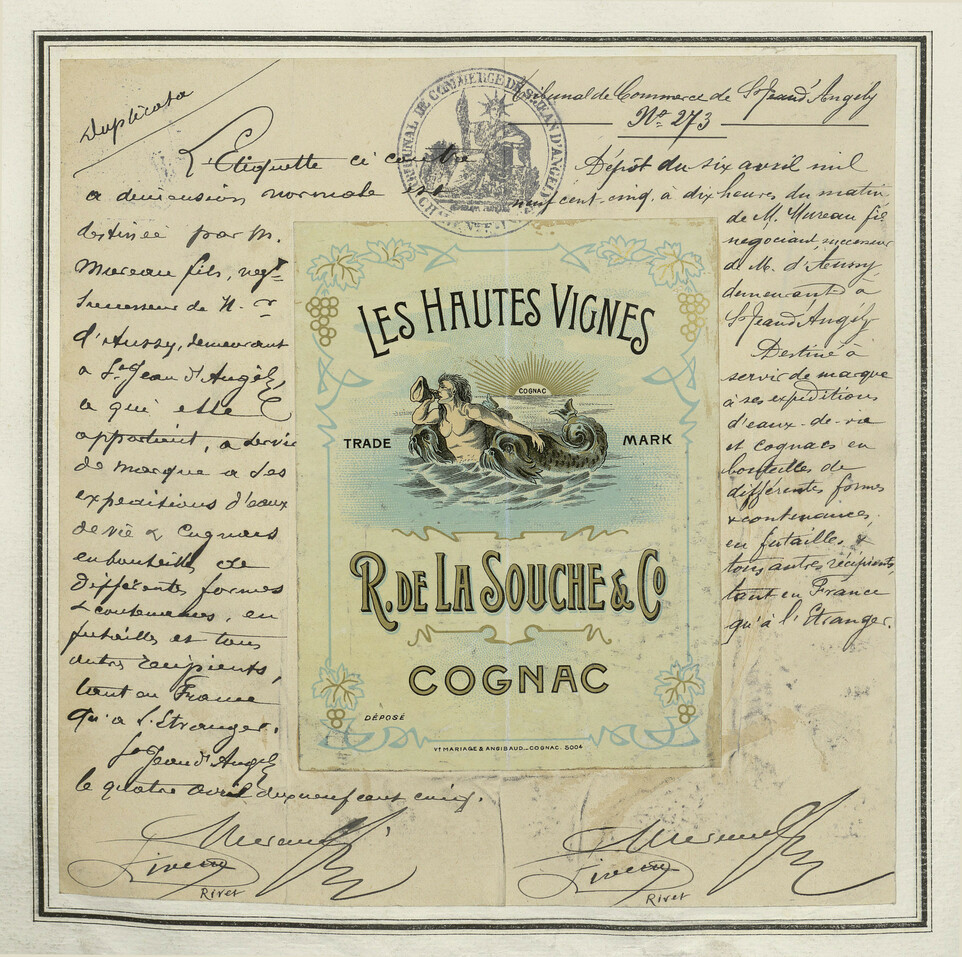 Duplicata
TRIBUNAL DE COMMERCE DE ST JEAN D'ANGELY
L'Etiquette ci contre
a dimension normale est
destinée par M.
Moreau fils, negt
Successeur de M.r
d'Aussy, demeurant
a St Jean d'Angély,
a qui elle
appartient, a servir
de marque a ses
expéditions d'eaux
de vie & Cognacs
en bouteilles de
différentes formes
& contenances, en
futailles et tous
autres récipients,
tant en France
qu'a l'Etranger.
St Jean d'Angély
le quatre avril dix neuf cent cinq.
Rivet
Tribunal de Commerce de St Jean d'Angély
No. 273
Dépôt du six avril mil
neuf cent cinq, à dix heures du matin
de M. Moreau fils
négociant, successeur
de M. d'Aussy,
demeurant à
St Jean d'Angély
Destiné à
servir de marque
à ses expéditions
d'eaux-de-vie
et cognacs en
bouteilles de
différentes formes
& contenances,
en futailles &
tous autres récipients,
tant en France
qu'à l'Etranger.
Rivet
LES HAUTES VIGNES
COGNAC
TRADE MARK
R. DE LA SOUCHE & Co
COGNAC
DÉPOSÉ
Vt MARIAGE & ANGIBAUD_COGNAC. 5004